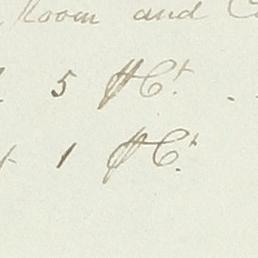 Room and
5 ⅌ Ct.
1 ⅌ Ct.